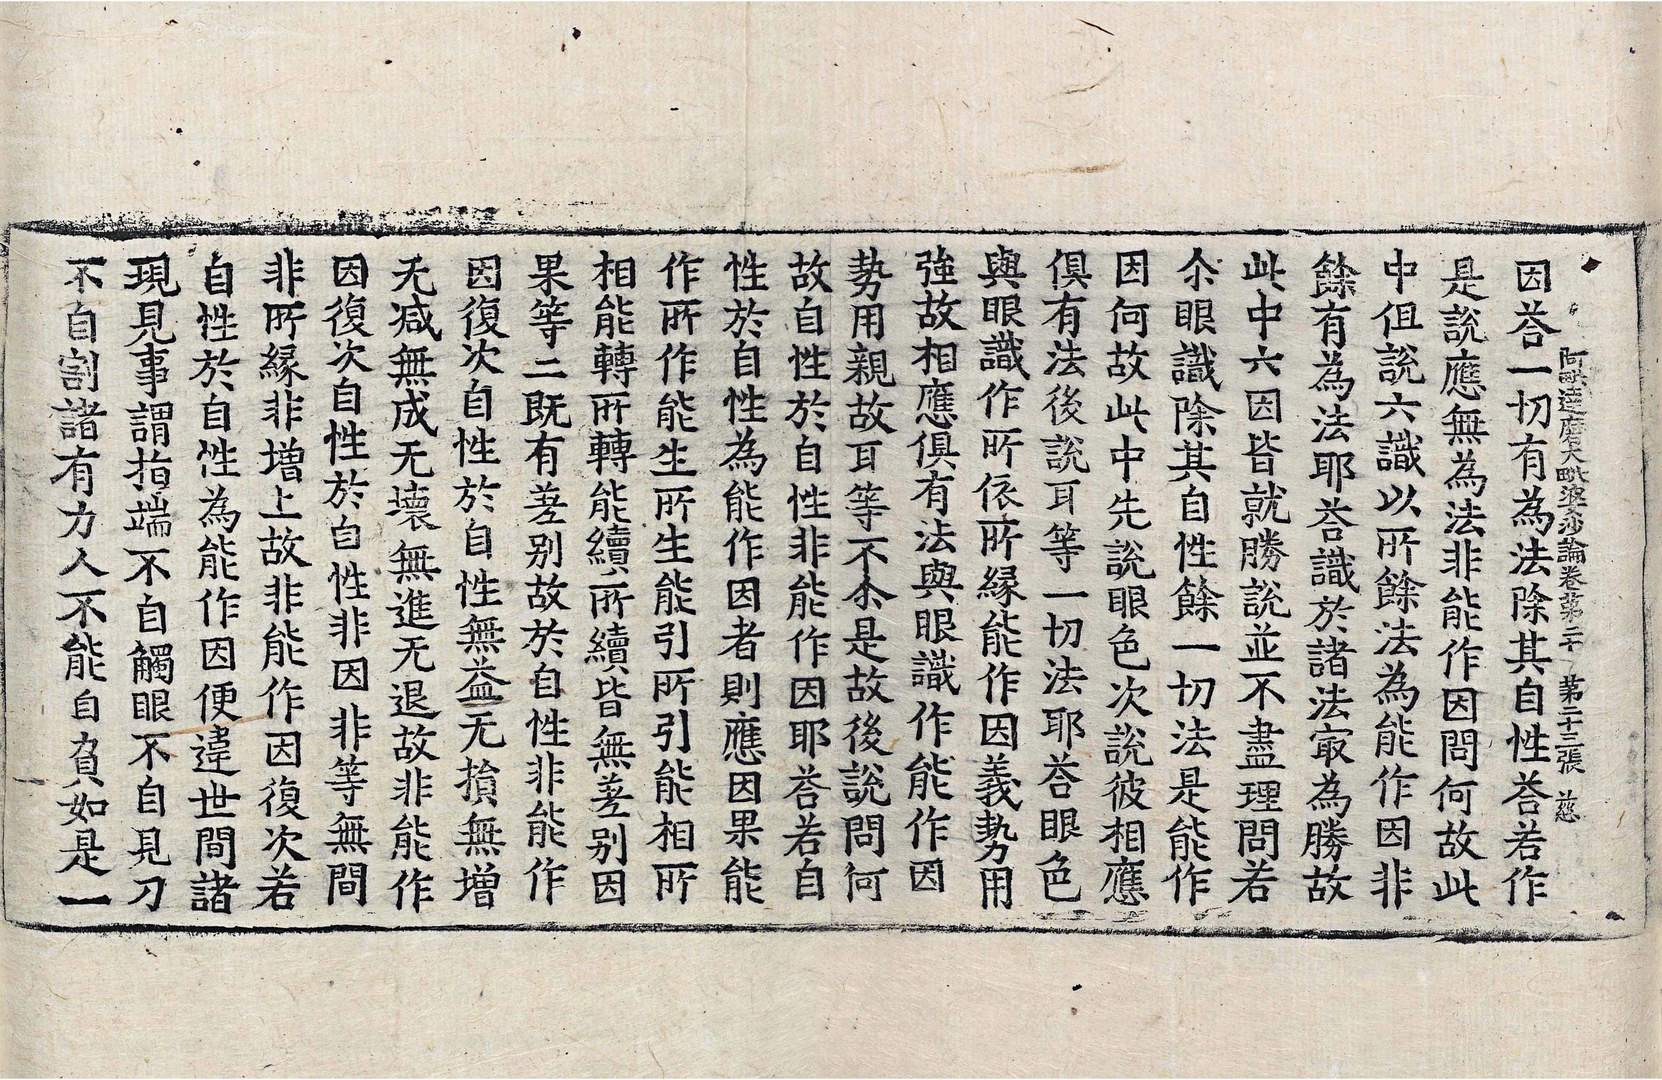 阿毗達磨大毗婆沙論卷第二十 第二十三張 慈
因荅一切有為法除其自性荅若作
是說應無為法非能作因問何故此
中但說六識以所餘法為能作因非
餘有為法耶荅識於諸法冣為勝故
此中六因皆就勝說並不盡理問若
尒眼識除其自性餘一切法是能作
因何故此中先說眼色次說彼相應
俱有法後說耳等一切法耶荅眼色
與眼識作所依所緣能作因義勢用
強故相應俱有法與眼識作能作因
勢用親故耳等不尒是故後說問何
故自性於自性非能作因耶荅若自
性於自性為能作因者則應因果能
作所作能生所生能引所引能相所
相能轉所轉能續所續皆無差别因
果等二既有差别故於自性非能作
因復次自性於自性無益无損無增
无減無成无壞無進无退故非能作
因復次自性於自性非因非等無間
非所緣非增上故非能作因復次若
自性於自性為能作因便違世間諸
現見事謂指端不自觸眼不自見刀
不自割諸有力人不能自負如是一